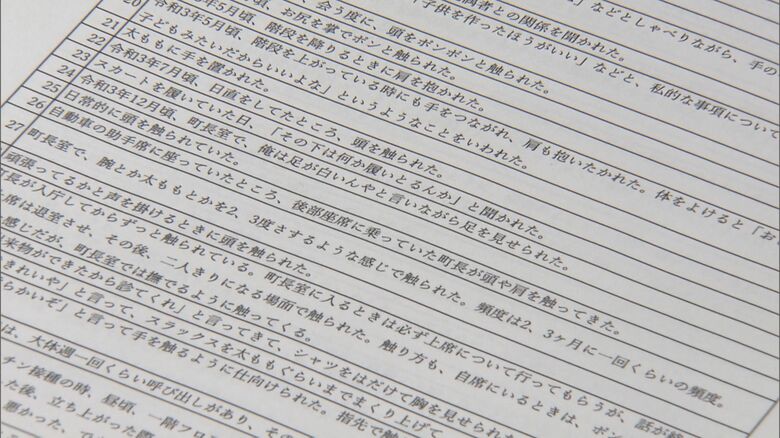 」などとしゃべりながら、手の
偶者との関係を聞かれた。
「子供を作ったほうがいい」などと、私的な事項について
、会う度に、頭をポンポンと触られた。
20
年5月頃、お尻を掌でポンと触られた。
令和3年5月頃、階段を降りるときに肩を抱かれた。
21
令和3年5月頃、階段を上がっている時にも手をつながれ、肩も抱いたかれた。体をよけると「お
子どもみたいだからいいよな」というようなことをいわれた。
22
太ももに手を置かれた。
23
令和3年7月頃、日直をしてたところ、頭を触られた。
24
スカートを履いていた日、「その下は何か履いとるんか」と聞かれた。
25
令和3年12月頃、町長室で、俺は足が白いんやと言いながら足を見せられた。
26
日常的に頭を触られていた。
自動車の助手席に座っていたところ、後部座席に乗っていた町長が頭や肩を触ってきた。
27
町長室で、腕とか太ももとかを2、3度さするような感じで触られた。頻度は2、3ヶ月に一回くらいの頻度。
頑張ってるかと声を掛けるときに頭を触られた。
町長が入庁してからずっと触られている。町長室に入るときは必ず上席について行ってもらうが、話が
席は退室させ、その後、二人きりになる場面で触られた。触り方も、自席にいるときは、ポン
感じだが、町長室では撫でるように触ってくる。
来物ができたから診てくれ」と言ってきて、シャツをはだけて胸を見せられた
きれいや」と言って、スラックスを太ももぐらいまでまくり上げて
らかいぞ」と言って手を触るように仕向けられた。指先で触
は、大体週一回くらい呼び出しがあり、その
チン接種の時、昼頃、一階フロ
た後、立ち上がった際
悪かった、で